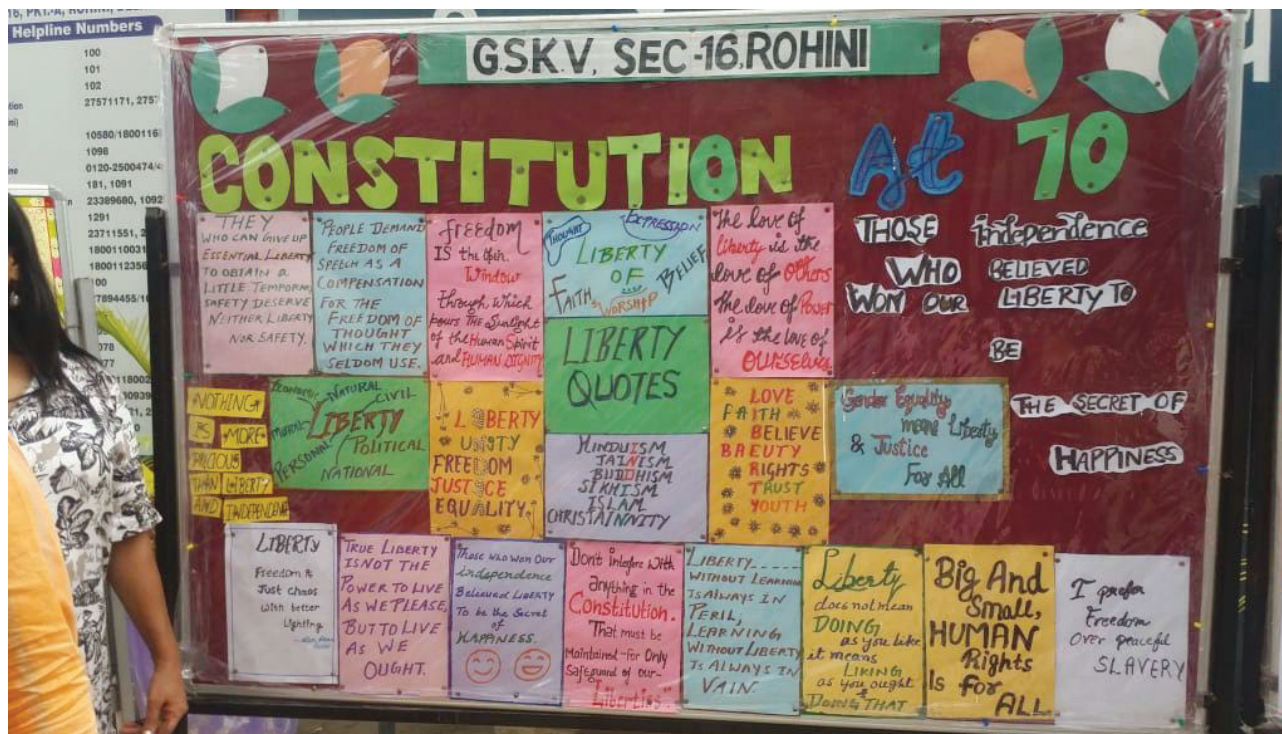 Helpline Numbers
100
101
102
27571171, 275
1098
0120-2500474/
181, 1091
23389680, 1092
1291
23711551, 2
180011003
1800112356
G.S.K.V, SEC-16, ROHINI
CONSTITUTION At 70
THEY
WHO CAN GIVE UP
ESSENTIAL LIBERTY
TO OBTAIN A
LITTLE TEMPORARY
SAFETY DESERVE
NEITHER LIBERTY
NOR SAFETY.
PEOPLE DEMAND
FREEDOM OF
SPEECH AS A
COMPENSATION
FOR THE
FREEDOM OF
THOUGHT
WHICH THEY
SELDOM USE.
Freedom
IS the open
Window
through which
pours THE Sunlight
of the Human Spirit
and HUMAN DIGNITY
THOUGHT EXPRESSION
LIBERTY
OF BELIEF
FAITH WORSHIP
LIBERTY
QUOTES
The love of
liberty is the
love of others
The love of Power
is the love of
OURSELVES
THOSE independence
WHO BELIEVED
WON OUR LIBERTY TO
BE
THE SECRET OF
HAPPINESS
NOTHING
IS MORE
THAN LIBERTY
AND INDEPENDENC
ECONOMIC NATURAL
CIVIL
LIBERTY
MORAL
PERSONAL POLITICAL
NATIONAL
LIBERTY
UNITY
FREEDOM
JUSTICE
EQUALITY.
HINDUISM
JAINISM
BUDDHISM
SIKHISM
ISLAM
CHRISTAINNITY
LOVE
FAITH
BELIEVE
BREUTY
RIGHTS
TRUST
YOUTH
Gender Equality
means Liberty
& Justice
For All
LIBERTY
Freedom is
Just chaos
With better
Lighting
TRUE LIBERTY
IS NOT THE
POWER TO LIVE
AS WE PLEASE,
BUT TO LIVE
AS WE
OUGHT.
Those who won Our
independence
Believed LIBERTY
To be the Secret
of
HAPPINESS.
Don't interfere With
anything in the
Constitution.
That must be
Maintained-for Only
Safeguard of our-
Liberties"
LIBERTY_____
WITHOUT LEARNING
IS ALWAYS IN
PERIL,
LEARNING
WITHOUT LIBERTY
IS ALWAYS IN
VAIN.
Liberty
does not mean
DOING
as you like
it means
LIKING
as you ought
DOING THAT
Big And
Small,
HUMAN
Rights
Is for
ALL
I prefer
Freedom
Over peaceful
SLAVERY